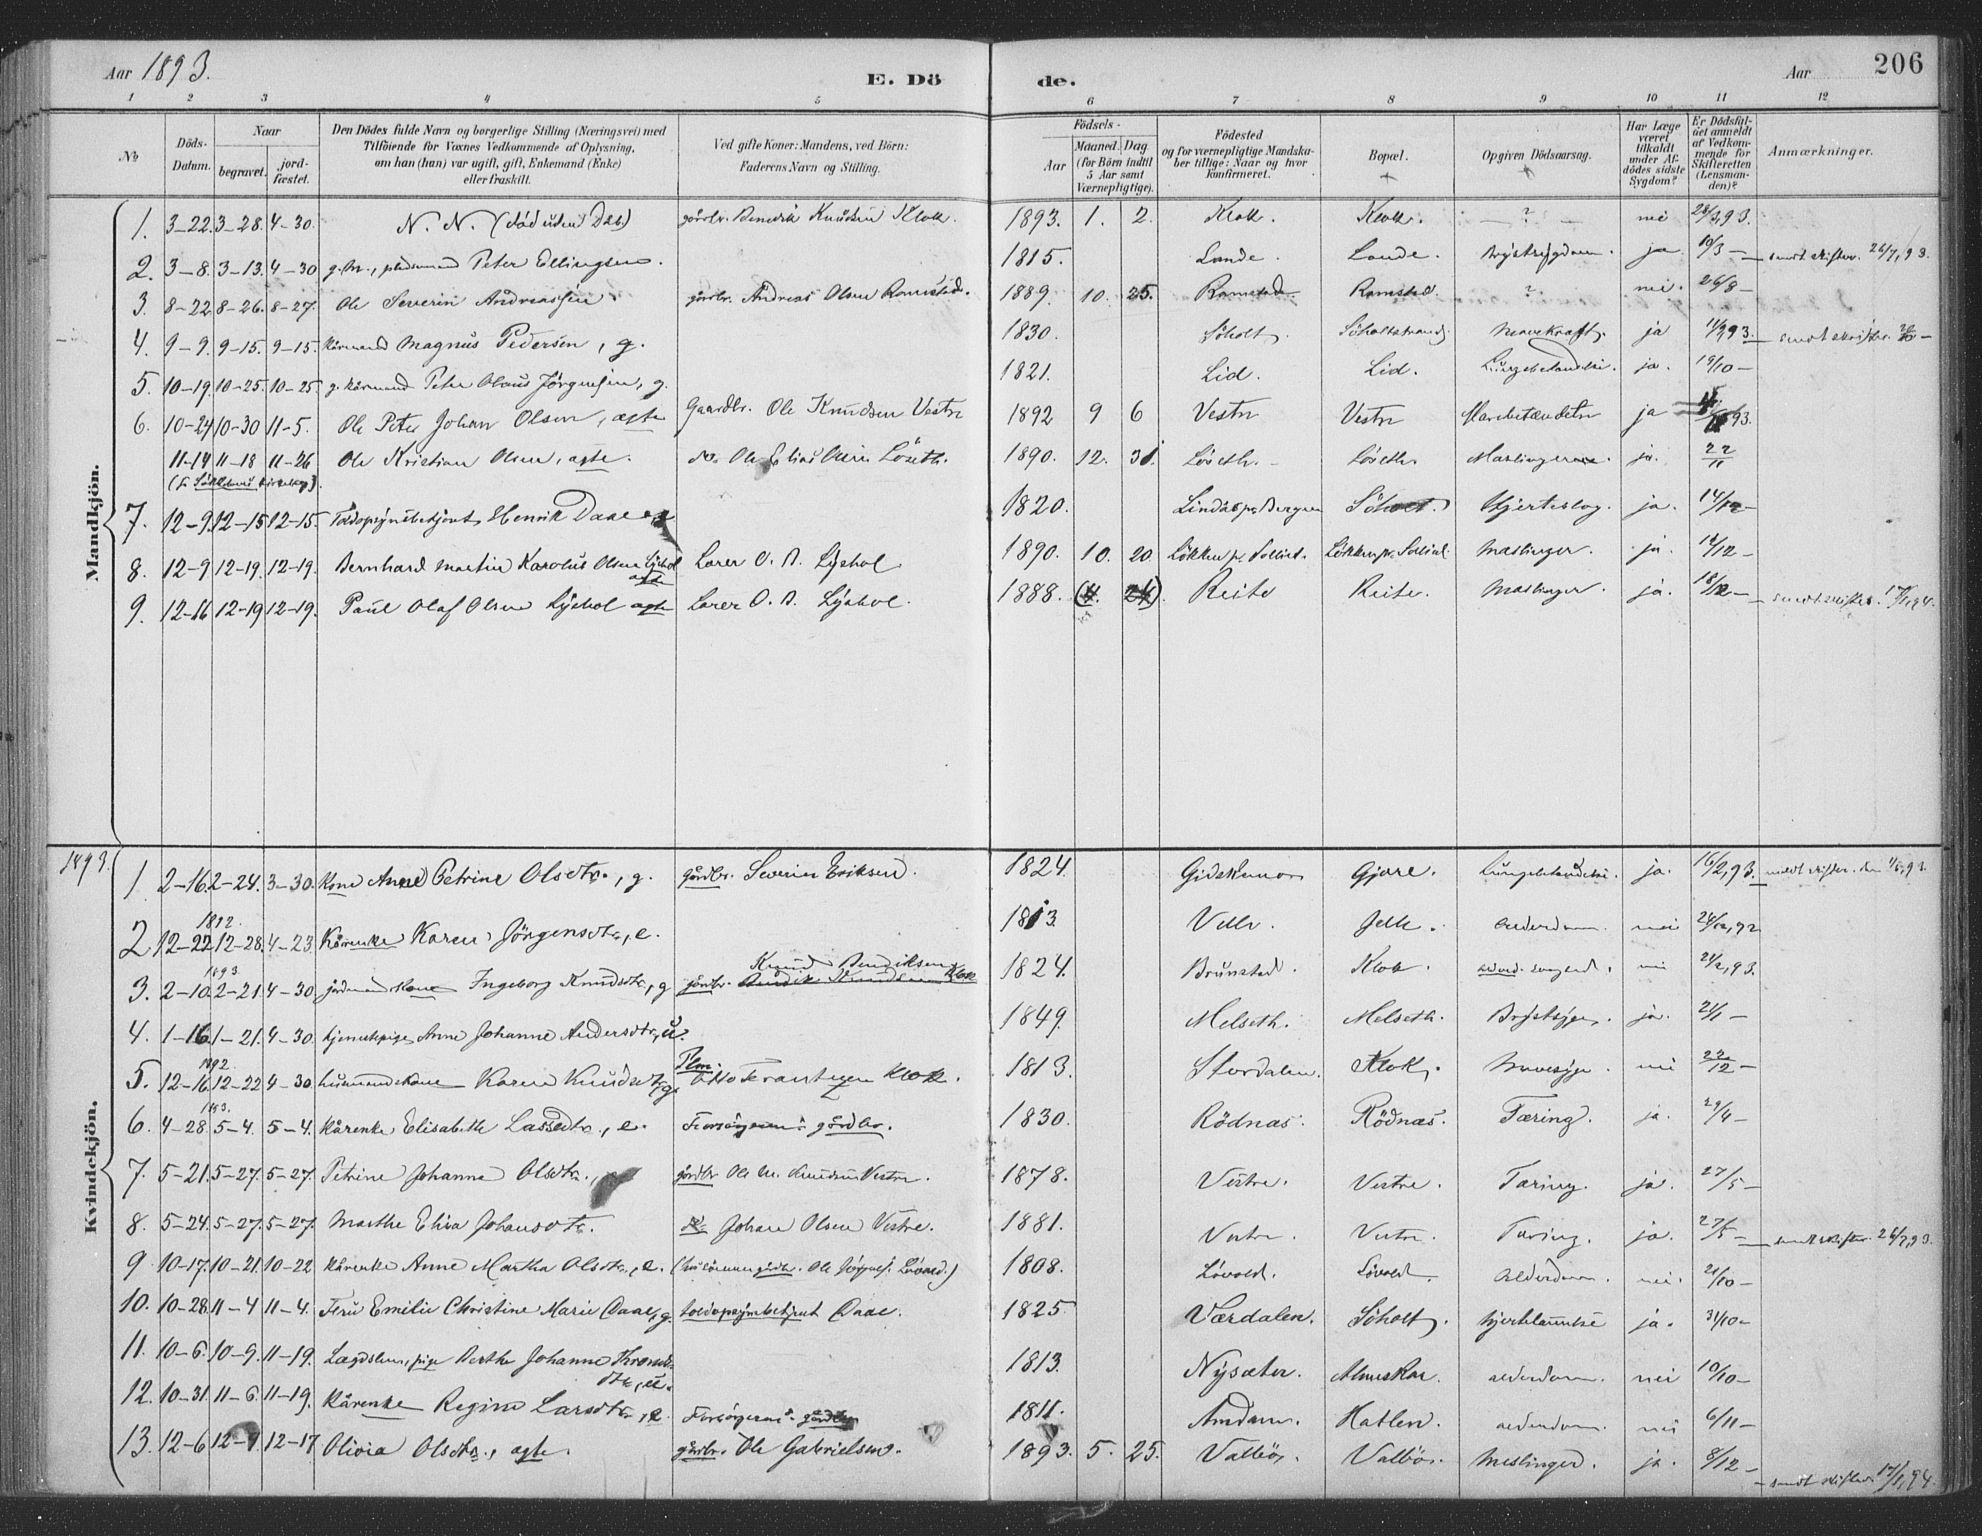 Aar 1893. E. Dö de. Aar 206
1 2 3 4 5 6 7 8 9 10 11 12
No. Döds-Datum. Naar begravet. jordfæstet. Den Dödes fulde Navn og borgerlige Stilling (Næringsvei) med Tilföiende for Voxnes Vedkommende af Oplysning, om han (hun) var ugift, gift, Enkemand (Enke) eller fraskilt. Ved gifte Koner: Mandens, ved Börn: Faderens Navn og Stilling. Födsels- Aar Maaned. Dag (for Börn indtil 5 Aar samt Værnepligtige). Födested og for værnepligtige Mandskaber tillige: Naar og hvor konfirmeret. Bopæl. Opgiven Dödsaarsag. Har Læge været tilkaldt under Afdödes sidste Sygdom? Er Dödsfaldet anmeldt af Vedkommende for Skifteretten (Lensmanden)? Anmærkninger.
Mandkjön.
1. 3-22. 3-28. 4-30. N. N. (död uden Daab) gårdbr. Bendik Knudsen Klok. 1893. 1. 2. Klok. Klok. — ? — nei 28/3,93.
2. 3-8. 3-13. 4-30 g. m., pladsmand Peter Ellingsen. 1815. Lande. Lande. Brystsygdom. ja 10/3 — sendt skifter. 26/7,93.
3. 8-22 8-26. 8-27. Ole Severin Andreassen gårdbr. Andreas Olsen Ramstad. 1889. 10. 25. Ramstad. Ramstad. ? nei. 26/8 —
4. 9-9. 9-15. 9-15. kårmand Magnus Pedersen, g. 1830. Söholt. Söholtstrand Mavekræft. ja 11/9,93. — sendt skifter.
5. 10-19. 10-25. 10-25 g. kårmand Peter Olaus Jörgensen, g. 1821. Lid. Lid. Lungebetændelse. ja. 19/10 —
6. 10-24 10-30 11-5. Ole Peter Johan Olsen, ægte Gaardbr. Ole Knudsen Vestre 1892 9 6 Vestre Vestre ja 93.
11-14 11-18 11-26 Ole Kristian Olsen, ægte. do. Ole Elias Olsen Löseth. 1890. 12. 31. Löseth. Löseth. Mæslinger ja. 22/11
7. 12-9. 12-15 12-15. Toldopsynsbetjent Henrik Daae 1820. Lindås pr. Bergen Söholt. Hjerteslag. ja. 14/12 —
8. 12-9 12-19. 12-19. Bernhard Martin Karolus Olsen Lyshol ægte Lærer O. A. Lyshol 1890. 10. 20. Lökken pr. Lökken pr. Mæslinger. ja. 12/12 —
9. 12-16 12-19 12-19. Paul Olaf Olsen Lyshol ægte Lærer O. A. Lyshol. 1888. (4. 24). Reite Reite. Mæslinger. ja. 18/12 — sendt skifter. 17/1,94.
1893.
Kvindekjön.
1. 2-16. 2-24. 3-30. Kone Anne Petrine Olsdtr., g. gårdbr. Severin Eriksen. 1824. Gidskemo Gjære. Lungebetændelse. ja. 16/2,93. — meldt skifter. den 1/5,93.
1892.
2 12-22 12-28. 4-23. Kårenke Karen Jörgensdtr., e. 1813 Velle. Jelle. Alderdom. nei 24/12,92
1893.
3. 2-10. 2-21. 4-30 Kone Ingeborg Knudsdtr., g gårdbr. Knud Bendiksen Klok 1824. Brunstad. Klok. nei 24/2,93.
4. 1-16. 1-21. 4-30. tjenestepige Anne Johanne Andersdtr., u. 1849. Melseth. Melseth. Brystsyge. ja. 21/1 —
1892
5. 12-16. 12-22 4-30. husmandskone Karen Knudsdtr., g. Klok. 1813. Stordalen. Klok. Mavesyge. nei 22/12 —
1893.
6. 4-28. 5-4. 5-4. Kårenke Elisabeth Lassedtr., e. Forsörgeren: gårdbr. 1830. Rödnæs. Rödnæs. Tæring. ja. 29/4 —
7. 5-21. 5-27. 5-27. Petrine Johanne Olsdtr., gårdbr Ole M. Knudsen Vestre. 1878. Vestre. Vestre. Tæring. ja. 27/5 —
8. 5-24. 5-27. 5-27. Marthe Elisa Johansdtr. do. Johan Olsen Vestre. 1881. Vestre. Vestre. Tæring. ja. 27/5 — sendt skifter. 26/7,93.
9 10-17. 10-21. 10-22 Kårenke Anne Martha Olsdtr., e. gårdbr. Ole Lövold.) 1808. Lövold. Lövold. Alderdom. nei. 21/10 —
10. 10-28. 11-4 11-4. Fru Emilie Christine Marie Daae, g. toldopsynsbetjent Daae. 1825. Værdalen. Söholt. Hjertelamelse ja. 31/10 —
11. 10-6. 10-9. 11-19. Lægdslem, pige Berthe Johanne dtr., u. 1813. Nysæter. Almeskar. alderdom. nei 10/10 —
12. 10-31. 11-6. 11-19. Kårenke Regine Larsdtr., e. Forsörgeren: gårdbr. 1811. Amdam. Hatlen. alderdom. nei 6/11 —
13. 12-6. 12-9 12-17 Olivia Olsdtr., ægte. gårdbr. Ole Gabrielsen. 1893. 5. 25. Valbö. Valbö. Mæslinger. ja. 8/12 — sendt skifter. 17/1,94.